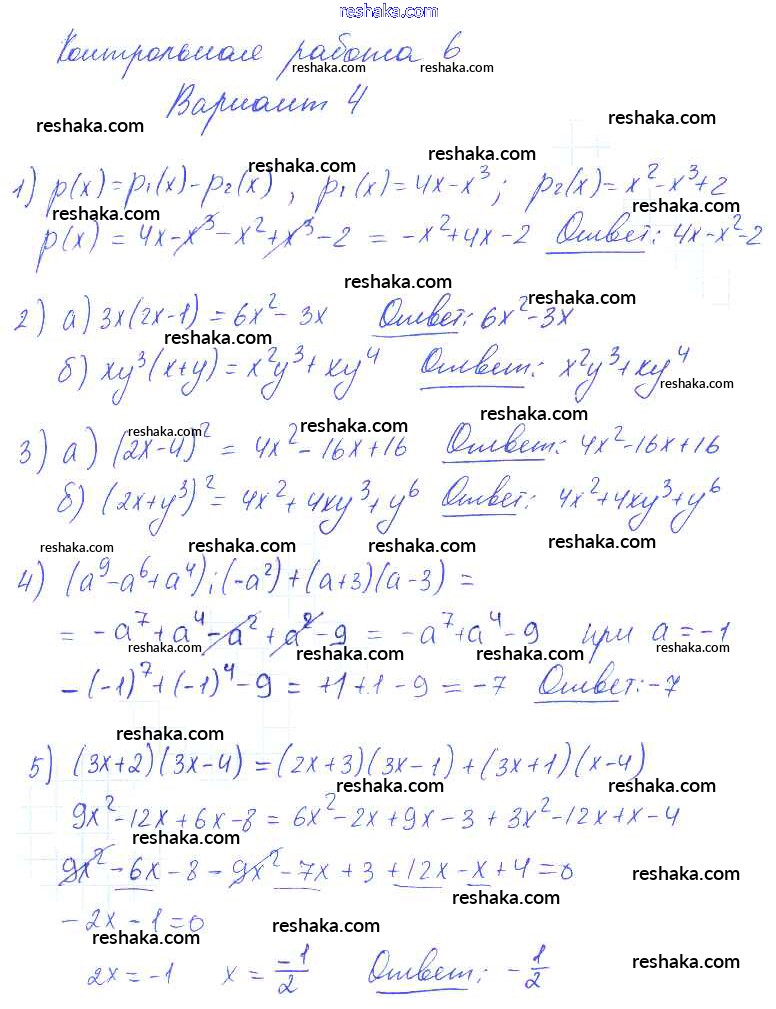 reshaka.com
Контрольная работа 6
reshaka.com reshaka.com
Вариант 4
reshaka.com reshaka.com
reshaka.com
1) p(x) = p₁(x) - p₂(x), p₁(x) = 4x - x³; p₂(x) = x² - x³ + 2
reshaka.com reshaka.com
p(x) = 4x - x³ - x² + x³ - 2 = -x² + 4x - 2 Ответ: 4x - x² - 2
reshaka.com
reshaka.com
2) а) 3x(2x-1) = 6x² - 3x Ответ: 6x² - 3x
reshaka.com
б) xy³(x+y) = x²y³ + xy⁴ Ответ: x²y³ + xy⁴
reshaka.com
reshaka.com
reshaka.com
3) а) (2x-4)² = 4x² - 16x + 16 Ответ: 4x² - 16x + 16
reshaka.com reshaka.com
б) (2x+y³)² = 4x² + 4xy³ + y⁶ Ответ: 4x² + 4xy³ + y⁶
reshaka.com reshaka.com reshaka.com reshaka.com
4) (a⁹ - a⁶ + a⁴) : (-a²) + (a+3)(a-3) =
reshaka.com
= -a⁷ + a⁴ - a² + a² - 9 = -a⁷ + a⁴ - 9 при a = -1
reshaka.com reshaka.com reshaka.com
-(-1)⁷ + (-1)⁴ - 9 = +1 + 1 - 9 = -7 Ответ: -7
reshaka.com
reshaka.com reshaka.com
5) (3x+2)(3x-4) = (2x+3)(3x-1) + (3x+1)(x-4)
reshaka.com reshaka.com
9x² - 12x + 6x - 8 = 6x² - 2x + 9x - 3 + 3x² - 12x + x - 4
reshaka.com
9x² - 6x - 8 - 9x² - 7x + 3 + 12x - x + 4 = 0
reshaka.com
reshaka.com
-2x - 1 = 0
reshaka.com reshaka.com
2x = -1 x = -1/2 Ответ: -1/2
reshaka.com